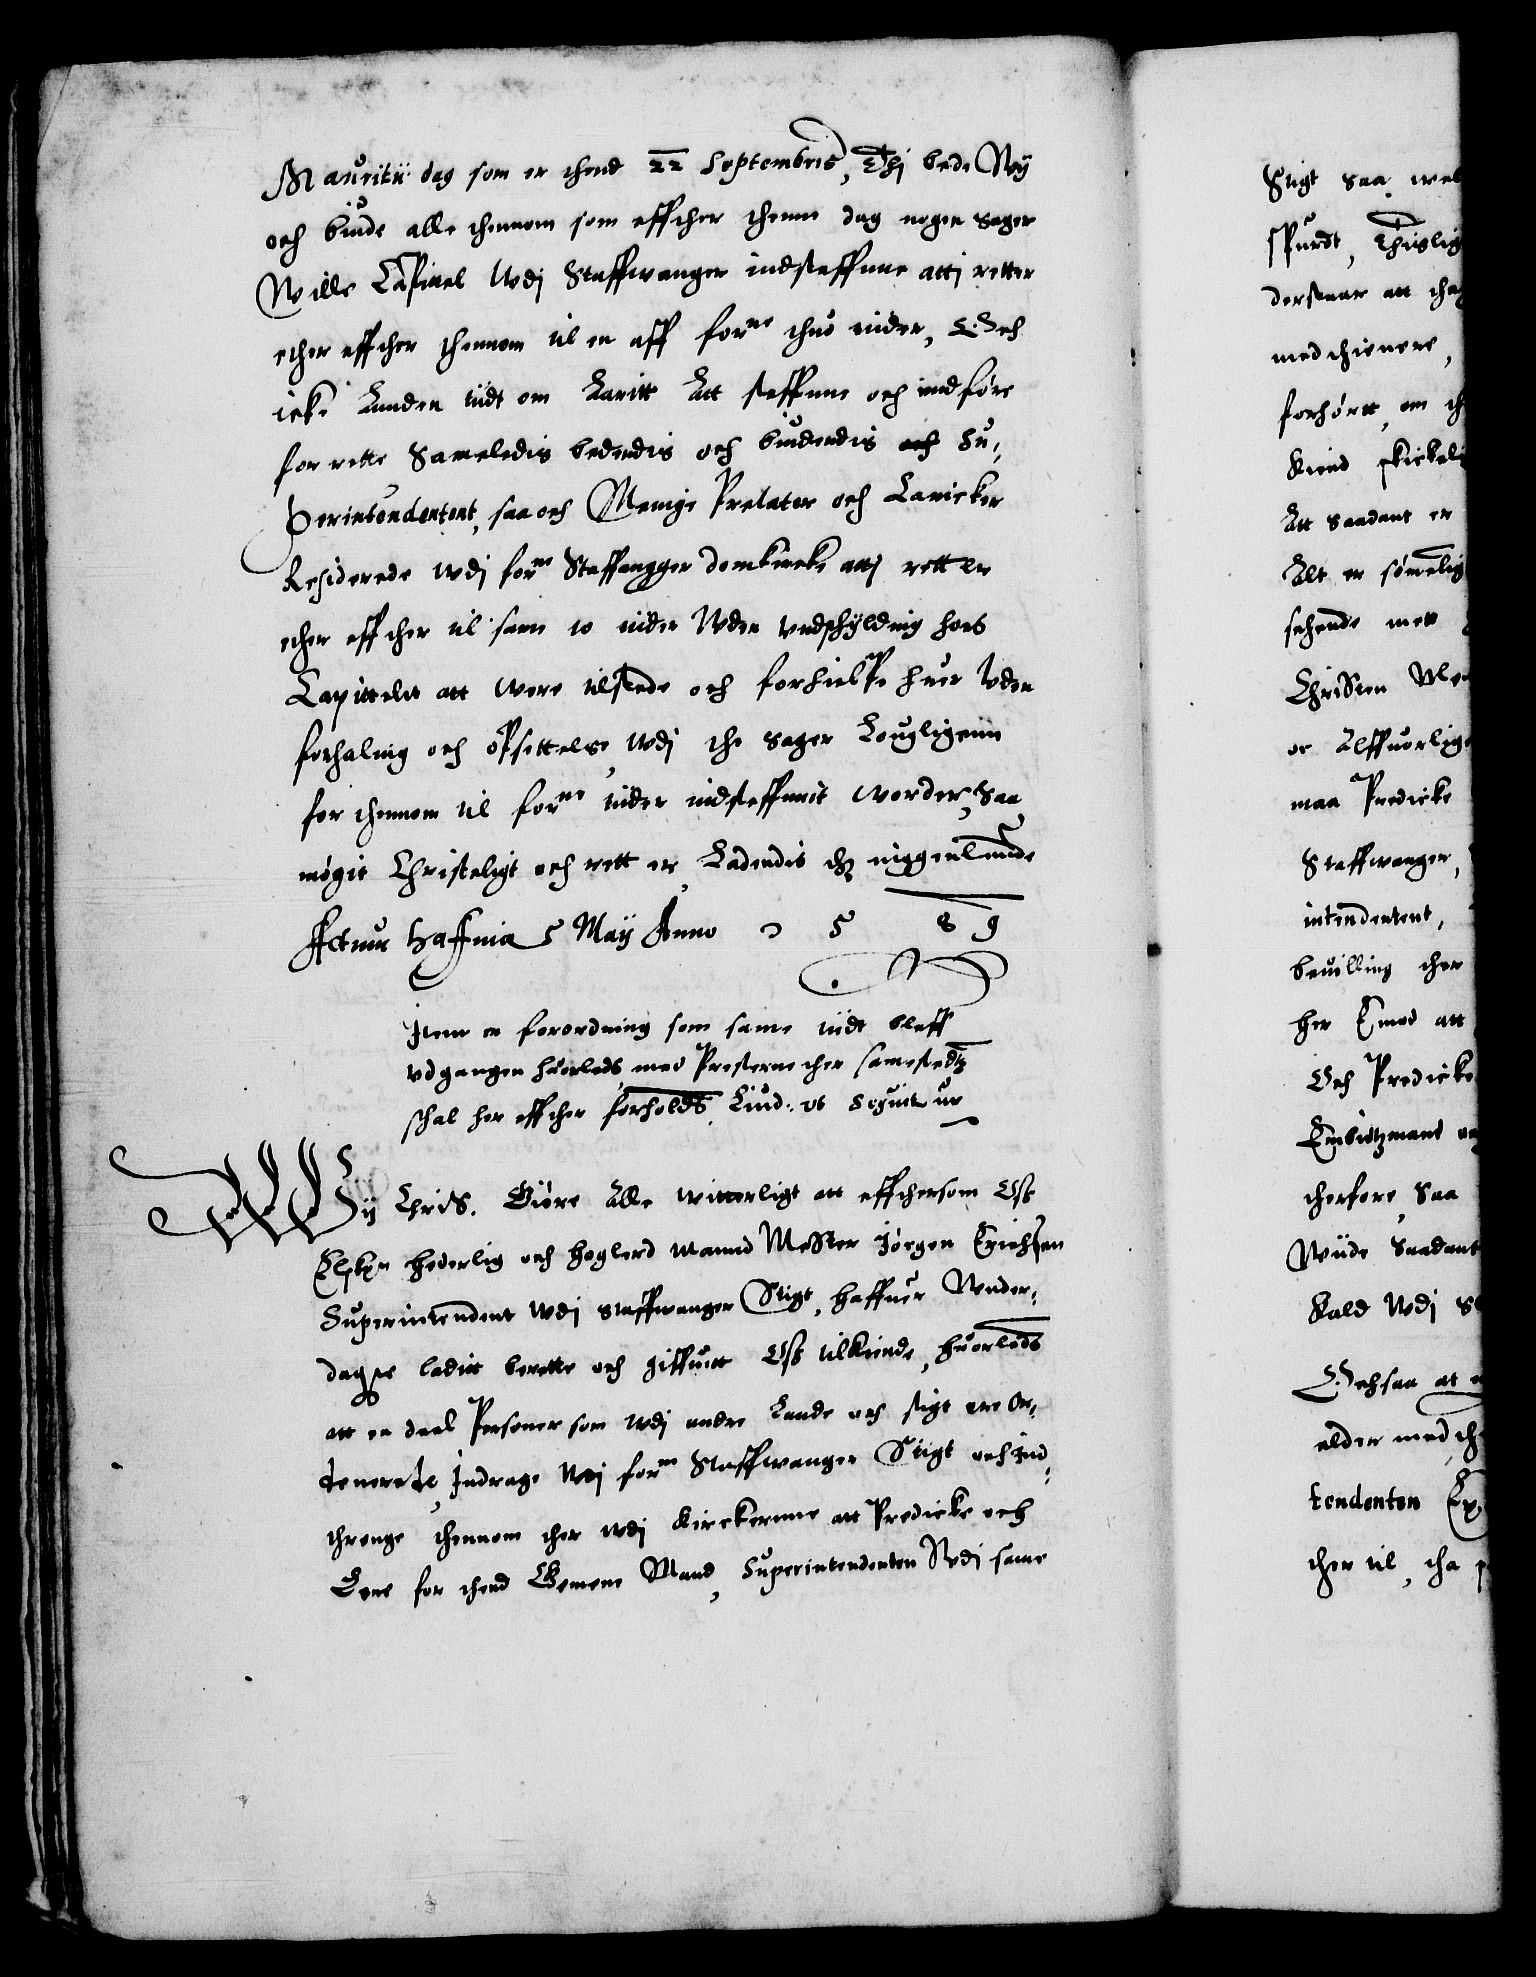 Mauritii dag som er thend 22 Septembris, Thj bede Wÿ
och biude alle thennom som effther thenne dag nogen sager
Wille Capitel Wdj Staffwanger indsteffnne attj retter
ether effther thennom til en aff for^ne thuo tider, Och
icke anden tiidt om Aaritt Att steffnne och indføre
for rette Sameledis bedendis och biudendis och Su,
perintendentent, saa och Menige Prelater och Canicker
Residerede wdj for^ne Staffangger domkircke attj retter
ether effther til sam to tider Wden Vndschÿldnig hoes
Capittelet att were tilstede och forhielpe huer Vden
forhaling och opsettelse, Wdj the sager Lougligenn
for thennom til for^ne tider indsteffnnit worder, Saa
møgit Christeligt och rett er, Ladendis thz inggenlunde
Actum Haffnia 5 Maÿ Anno 1 5 8 9
Item en forordning som same tiidt bleff
vdgangen huorleds med Presterne ther samestedtz
schal her effther forholds Liud: vt seguittur
Wÿ Chris. Giøre Alle witterligt att effthersom Oss
Elskn hederlig och høglerd mannd Mester Jørgen Erichsen
Superintendent wdj Staffwanger Stigt, haffuer Vnder,
dagste ladit berette och giffuit Oss tilkiende, huorleds
att en deel Personer som wdj andre Lande och stigt ere Or,
denerede, Indrage Wdj for^ne Staffwanger Stigt och Ind,
threnge thennom ther wdj Kirckernne att Predicke och
Lere for thend Gemene Mand, Superintendenten Wdj same
Stigt Saa wel
spurdt, Thislig
derstaar att tha
med thienere,
forhørtt, om th
Kiend skickeli
Att saadant er
Alt er sømelig
sehende mett
Christen Me
or Alffuorlige
maa Predicke
Staffwanger,
intendentent,
beuilling ther
her Emod att
Och Predicke
Embidtzmand
therfore, Saa
Wiide Saadant
Kald Wdj S
Och saa at
alder med th
tendenten Ex
ther til, tha